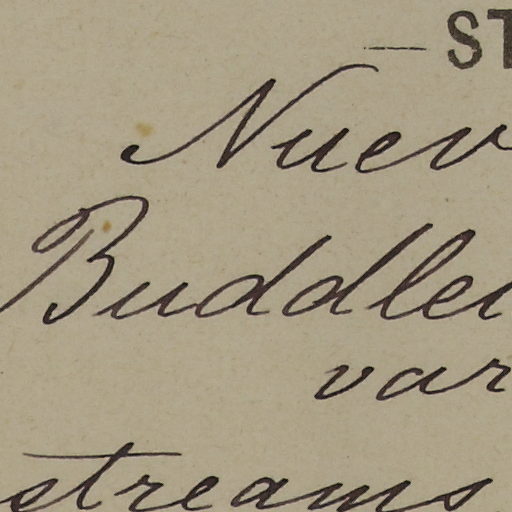 — ST
Nuev
Buddlei
var
streams